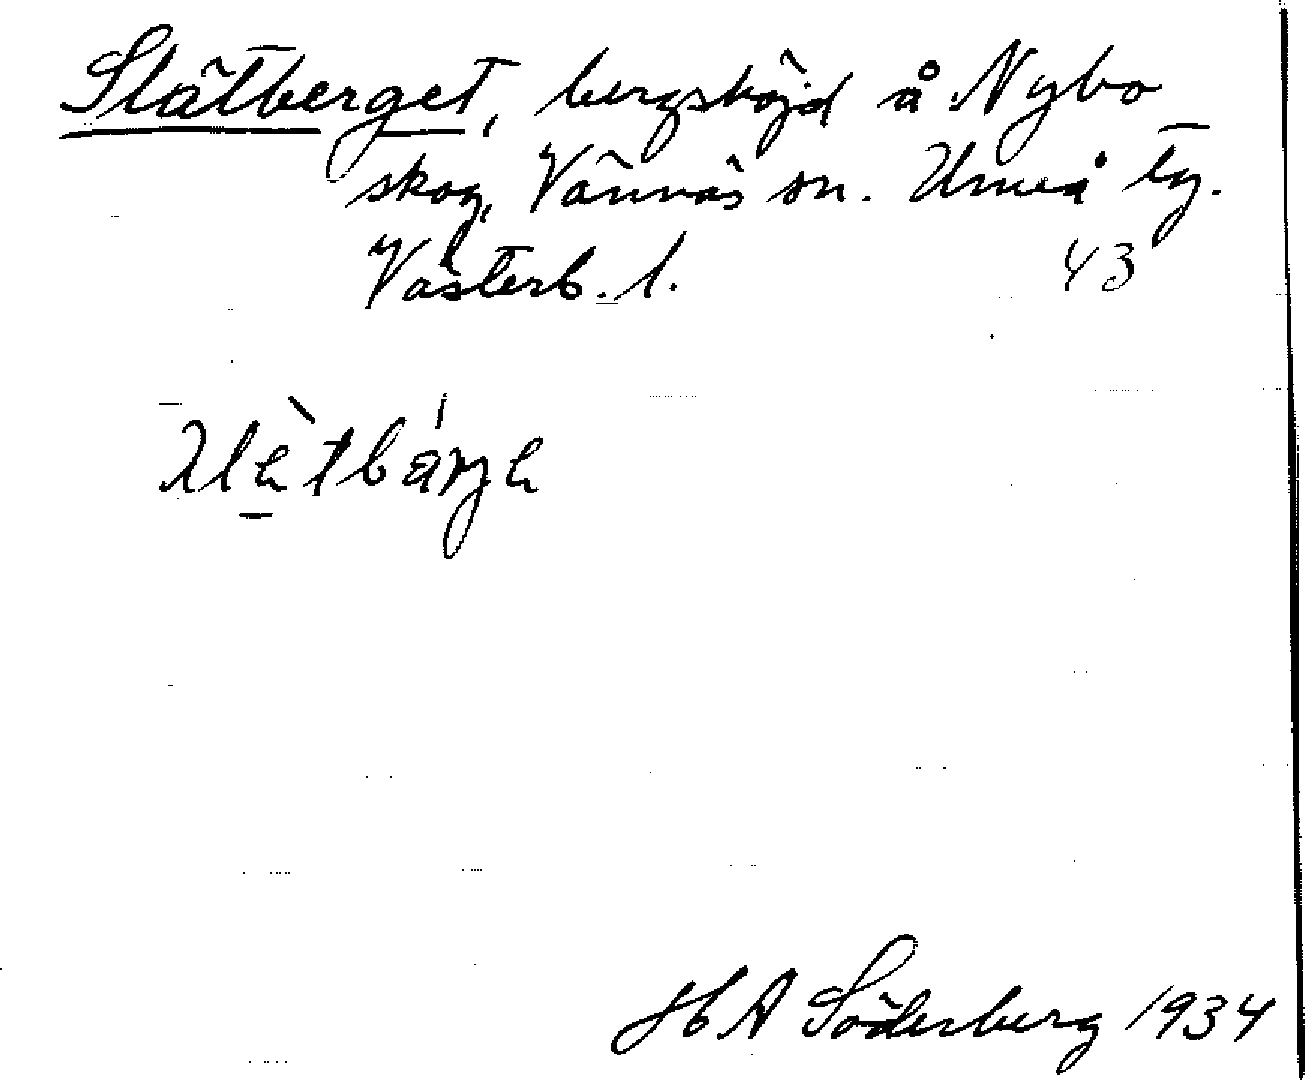 Slätberget, bergshöjd å Nybo
skog, Vännäs sn. Umeå tg.
Västerb. l. 43
H A Söderberg 1934